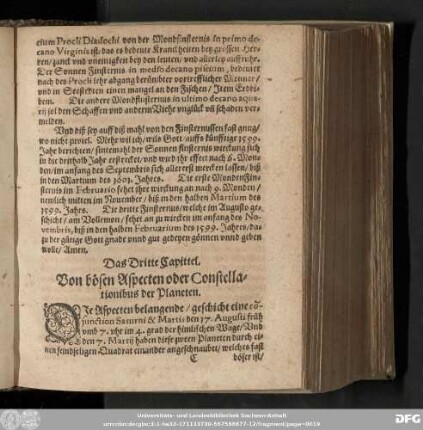 cium Procli Diadochi von der Mondfinsternis in primo de-
cano Virginis ist, das es bedeute Kranckheiten bey grossen Her-
ren/zanck vnd vneinigkeit bey den leuten/ vnd allerley auffruhr.
Der Sonnen Finsternis in medio decano piscium, bedeutet
nach des Procli lehr abgang berümbter vortrefflicher Menner/
vnd in Seestedten einen mangel an den Fischen/ Item Erdbi-
den. Die andere Mondfinsternus in ultimo decano aqua-
rij sol den Schaffen vnd anderm Viehe vnglück vñ schaden ver-
melden.
Vnd diß sey auff diß mahl von den Finsternussen fast gnug/
wo nicht zuviel. Mehr wil ich/ wils Gott/ auffs künfftige 1599.
Jahr berichten/ sintemahl der Sonnen finsternis wirckung sich
in die dritthalb Jahr erstrecket/ vnd wird ihr effect nach 6. Mon-
den/ im anfang des Septembris sich allererst mercken lassen/ biß
in den Martium des 1601. Jahres. Die erste MondenFin-
sternis im Februario sehet ihre wirckung an nach 9. Monden/
nemlich mitten im November/ biß in den halben Martium des
1599. Jahrs. Die dritte Finsternus/ welche im Augusto ge-
schicht/ am Vollemon/ sehet an zu wircken im anfang des No-
vembris, biß in den halben Februarium des 1599. Jahres/ da-
zu der gütige Gott gnade vnnd gut gedeyen gönnen vnnd geben
wolle/ Amen.
Das Dritte Capittel.
Von bösen Aspecten oder Constella-
tionibus der Planeten.
DIe Aspecten belangende/ geschicht eine cō-
junction Saturni & Martis den 17. Augusti früh
vmb 7. vhr im 4. grad der himlischen Wage/ Vnd
den 7. Martij haben diese zween Planeten durch ei-
nen feindseligen Quadrat einander angeschnaubet/ welches fast
C böser ist/
Universitäts- und Landesbibliothek Sachsen-Anhalt
DFG